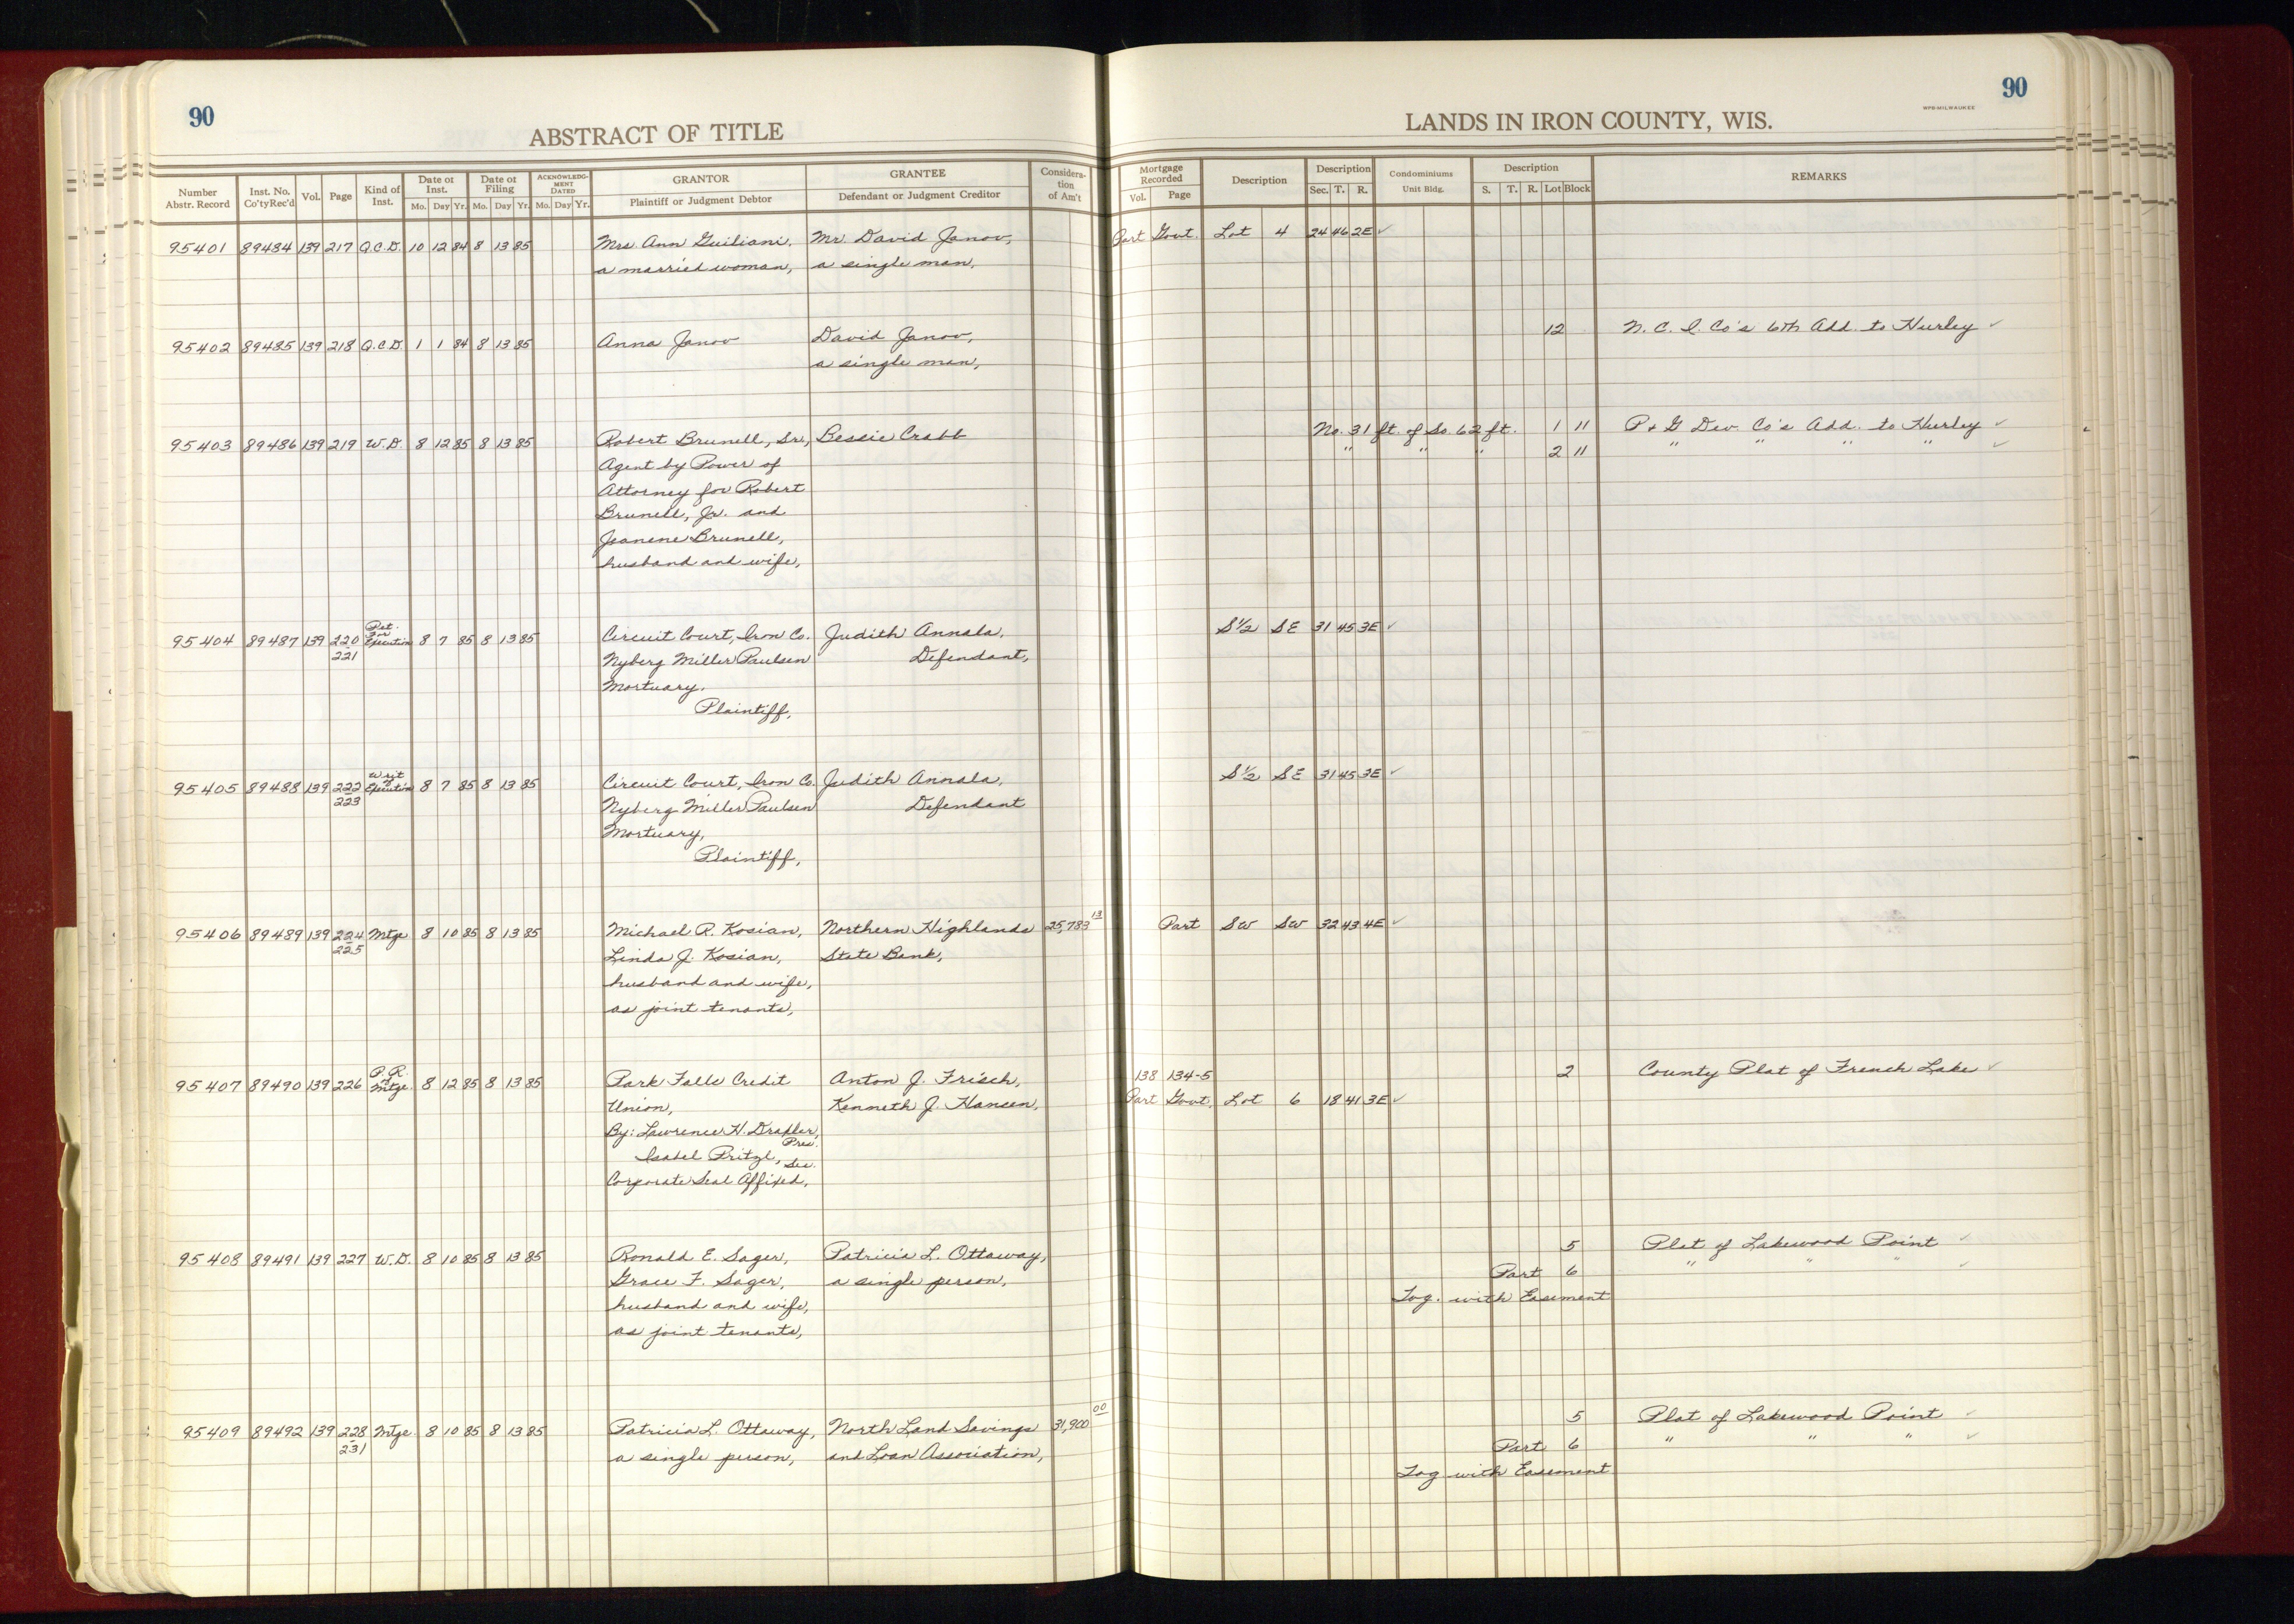 90
ABSTRACT OF TITLE
LANDS IN IRON COUNTY, WIS.
WPR-MILWAUKEE
90
Number Abstr. Record Inst. No. Co'ty Rec'd Vol. Page Kind of Inst. Date of Inst. Mo. Day Yr. Date of Filing Mo. Day Yr. ACKNOWLEDGMENT DATED Mo. Day Yr. GRANTOR Plaintiff or Judgment Debtor GRANTEE Defendant or Judgment Creditor Consideration of Am't Mortgage Recorded Vol. Page Description Description Sec. T. R. Condominiums Unit Bldg. Description S. T. R. Lot Block REMARKS
95401 89484 139 217 Q.C.D. 10 12 84 8 13 85 Mrs. Ann Guiliani, Mr. David Janov, Part Govt. Lot 4 24 46 2E ✓
a married woman, a single man,
95402 89485 139 218 Q.C.D. 1 1 84 8 13 85 Anna Janov David Janov, 12 N. C. I. Co's 6th Add. to Hurley ✓
a single man,
95403 89486 139 219 W.D. 8 12 85 8 13 85 Robert Brunell, Sr., Bessie Crabb No. 31 ft. of So. 62 ft. 1 11 P & G Dev. Co's Add. to Hurley ✓
Agent by Power of " " " 2 11 " " " " ✓
Attorney for Robert
Brunell, Jr. and
Jeanene Brunell,
husband and wife,
95404 89487 139 220 221 Pet. for Execution 8 7 85 8 13 85 Circuit Court, Iron Co. Judith Annala, S 1/2 SE 31 45 3E ✓
Nyberg Miller Paulsen Defendant,
Mortuary,
Plaintiff,
95405 89488 139 222 223 Writ of Execution 8 7 85 8 13 85 Circuit Court, Iron Co. Judith Annala, S 1/2 SE 31 45 3E ✓
Nyberg Miller Paulsen Defendant
Mortuary,
Plaintiff,
95406 89489 139 224 225 Mtge 8 10 85 8 13 85 Michael R. Kosian, Northern Highlands 25,783 13 Part SW SW 32 43 4E ✓
Linda J. Kosian, State Bank,
husband and wife,
as joint tenants,
95407 89490 139 226 P.R. of Mtge. 8 12 85 8 13 85 Park Falls Credit Anton J. Frisch, 138 134-5 2 County Plat of French Lake ✓
Union, Kenneth J. Hansen, Part Govt. Lot 6 18 41 3E ✓
By: Lawrence H. Drahler, Pres.
Isabel Pritzl, Sec.
Corporate Seal Affixed.
95408 89491 139 227 W.D. 8 10 85 8 13 85 Ronald E. Sager, Patricia L. Ottaway, 5 Plat of Lakewood Point ✓
Grace F. Sager, a single person, Part 6 " " " ✓
husband and wife, Tog. with Easement
as joint tenants,
95409 89492 139 228 231 Mtge 8 10 85 8 13 85 Patricia L. Ottaway, North Land Savings 31,900 00 5 Plat of Lakewood Point ✓
a single person, and Loan Association, Part 6 " " " ✓
Tog with Easement